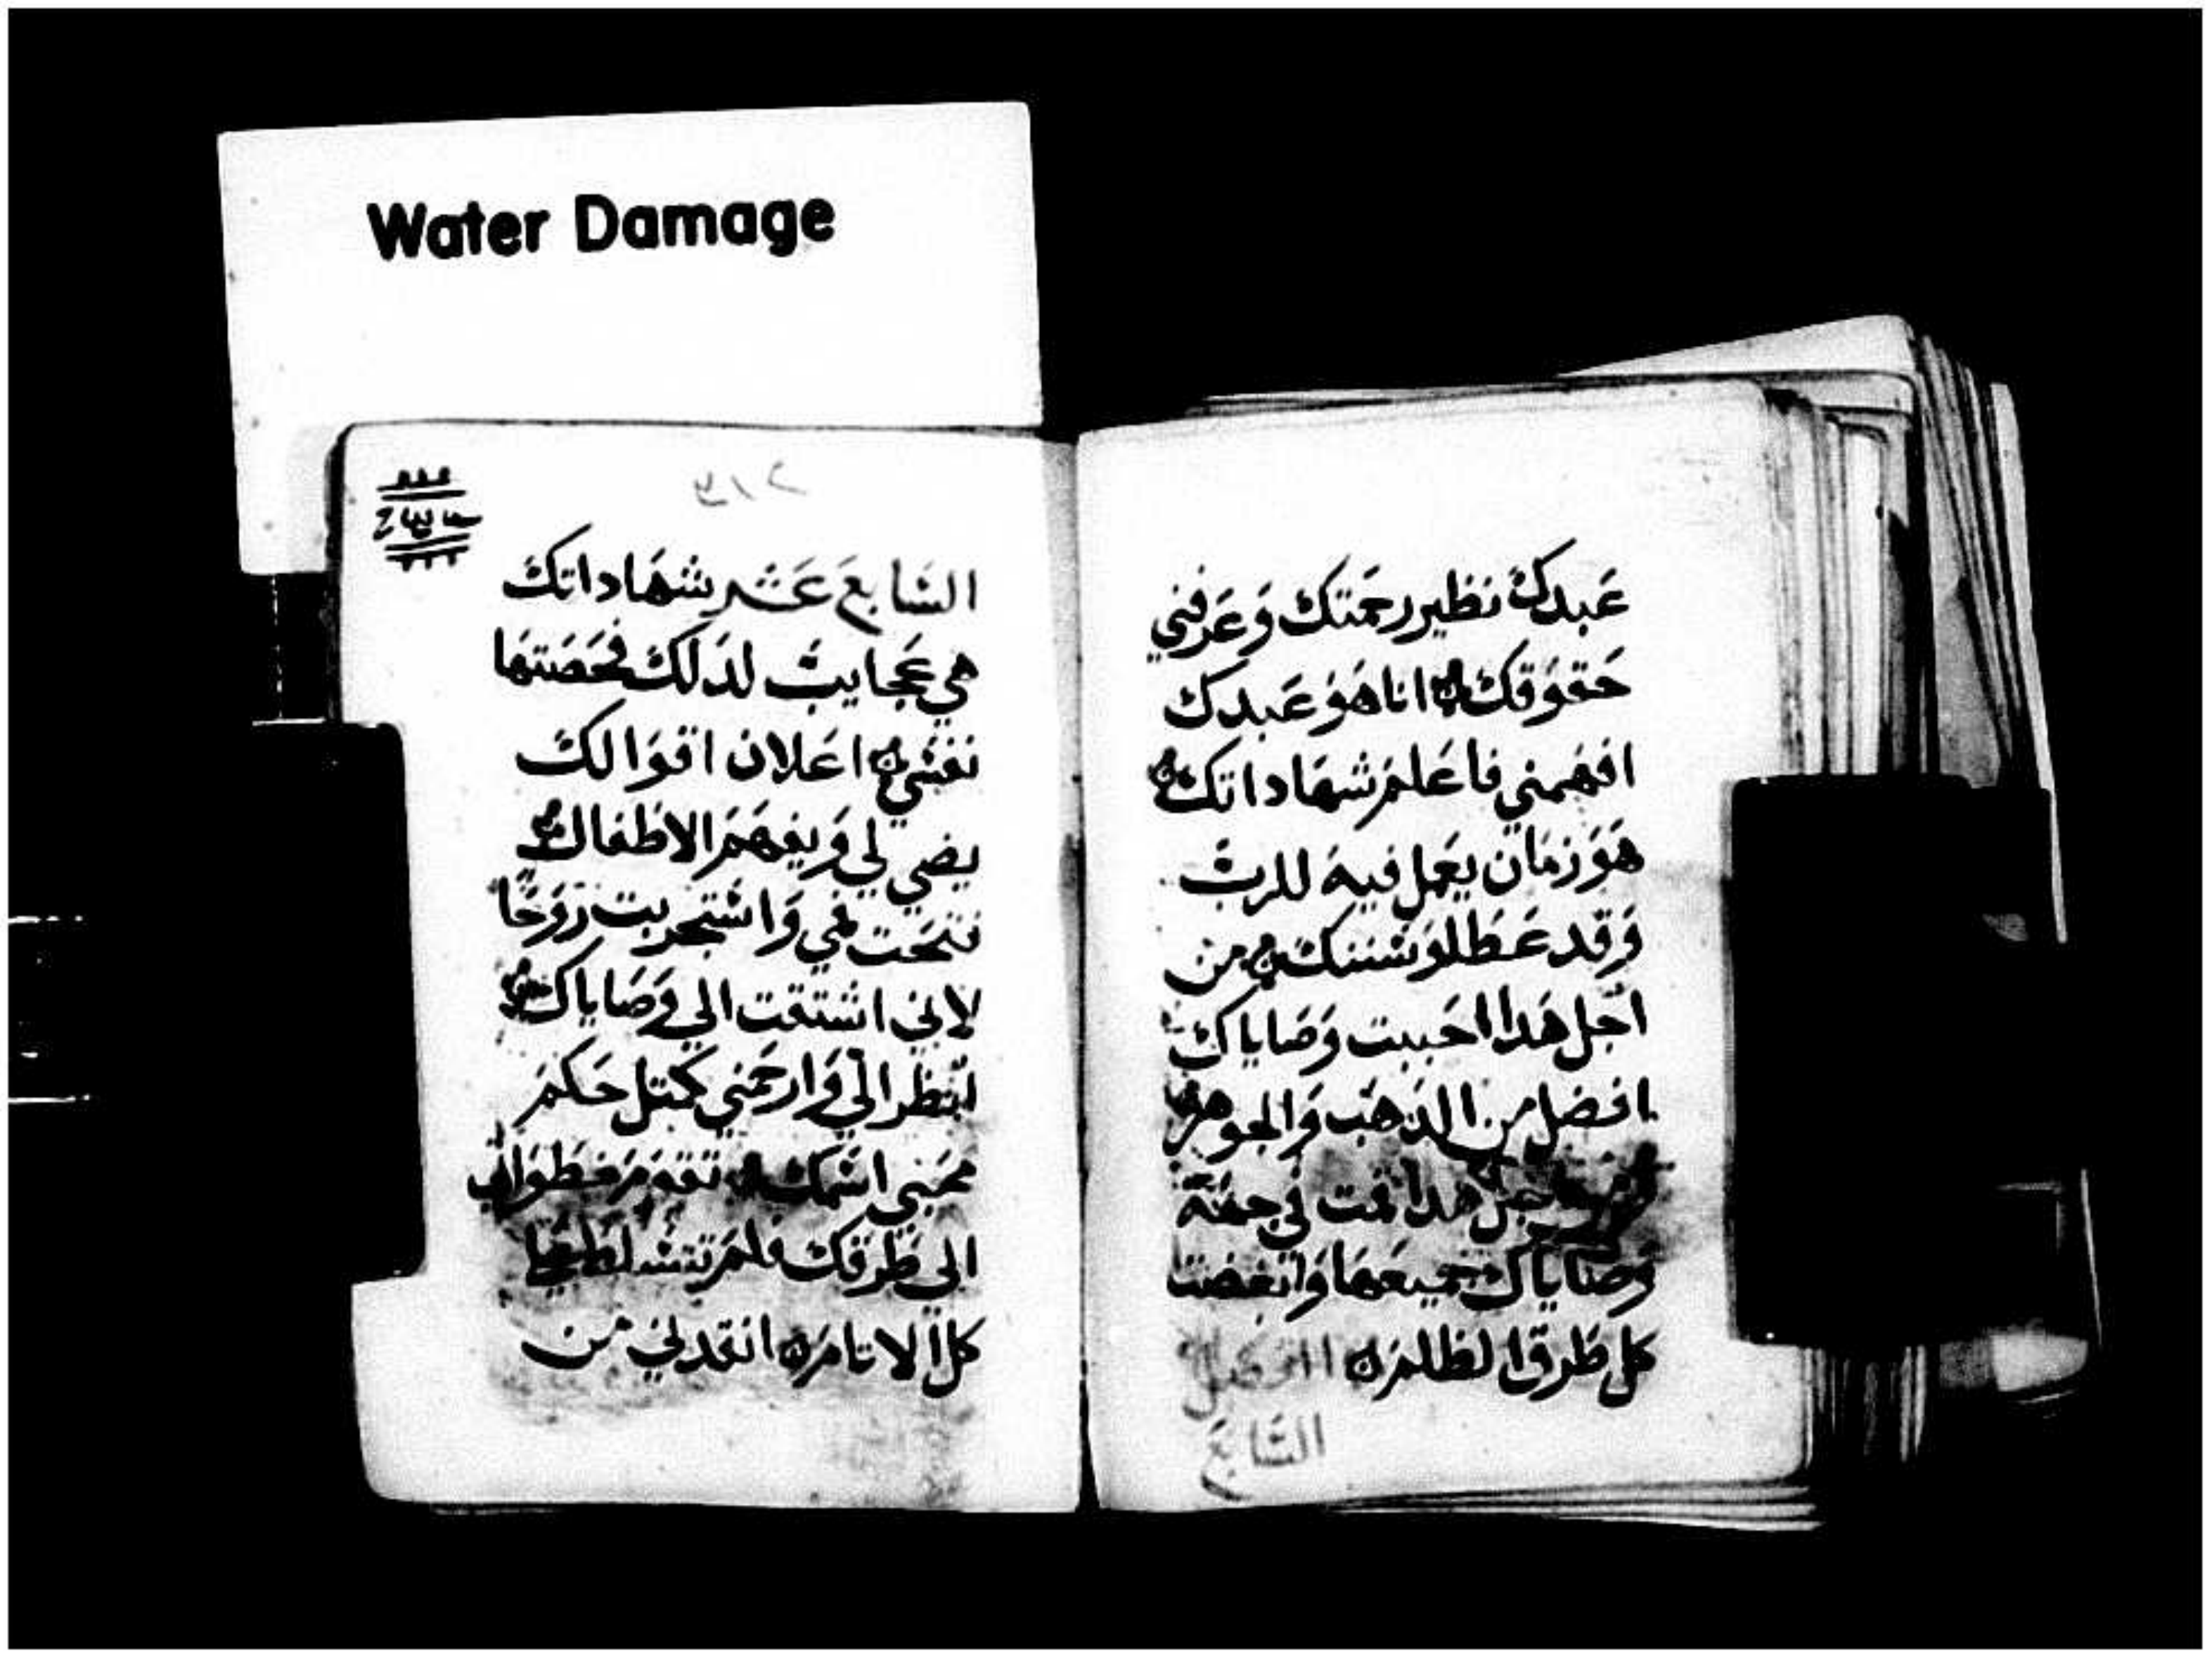 Water Damage
عَبدكَ نظير رحمَتك وَعَرفني
حَقوَقكَ انا هَوَ عَبدك
افهَمني فاعَلمَ شهَاداتكَ
هَوَ زمَان يعَمل فيهَ للربَّ
وَقد عَطلوَ سُننكَ من
اجَل هَدا احَببت وَصَاياكَ
افضل من الذهَب وَالجوهرَ
هدا قمت في جهَة
وَصَاياكَ جميعَهَا وَابغضت
كل طرق الظلمَ
السَّابعَ
٢١٧
السَّابعَ عَشر شهَاداتكَ
هي عَجايبَ لدَلكَ فحَصَتهَا
نفسَي اعَلان اقوَالكَ
يضي لي وَيفهَمَ الاطفالَ
فتحَت فمي وَاسَتجدبت رَوَحًا
لاني اشتقت الي وَصَاياكَ
انظر اليَّ وَارحَمني كمَتل حَكمَ
محبي اسَمكَ تقوَمَ خطوَاتي
الي طرَقكَ فلمَ تتسَلط عَليَّ
كل الاتامَ انقدني من